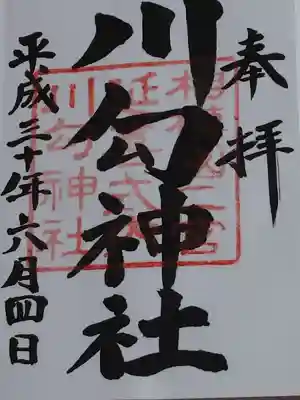 奉拝
川勾神社
平成三十年六月四日
相模国二之宮
延喜式内
川勾神社